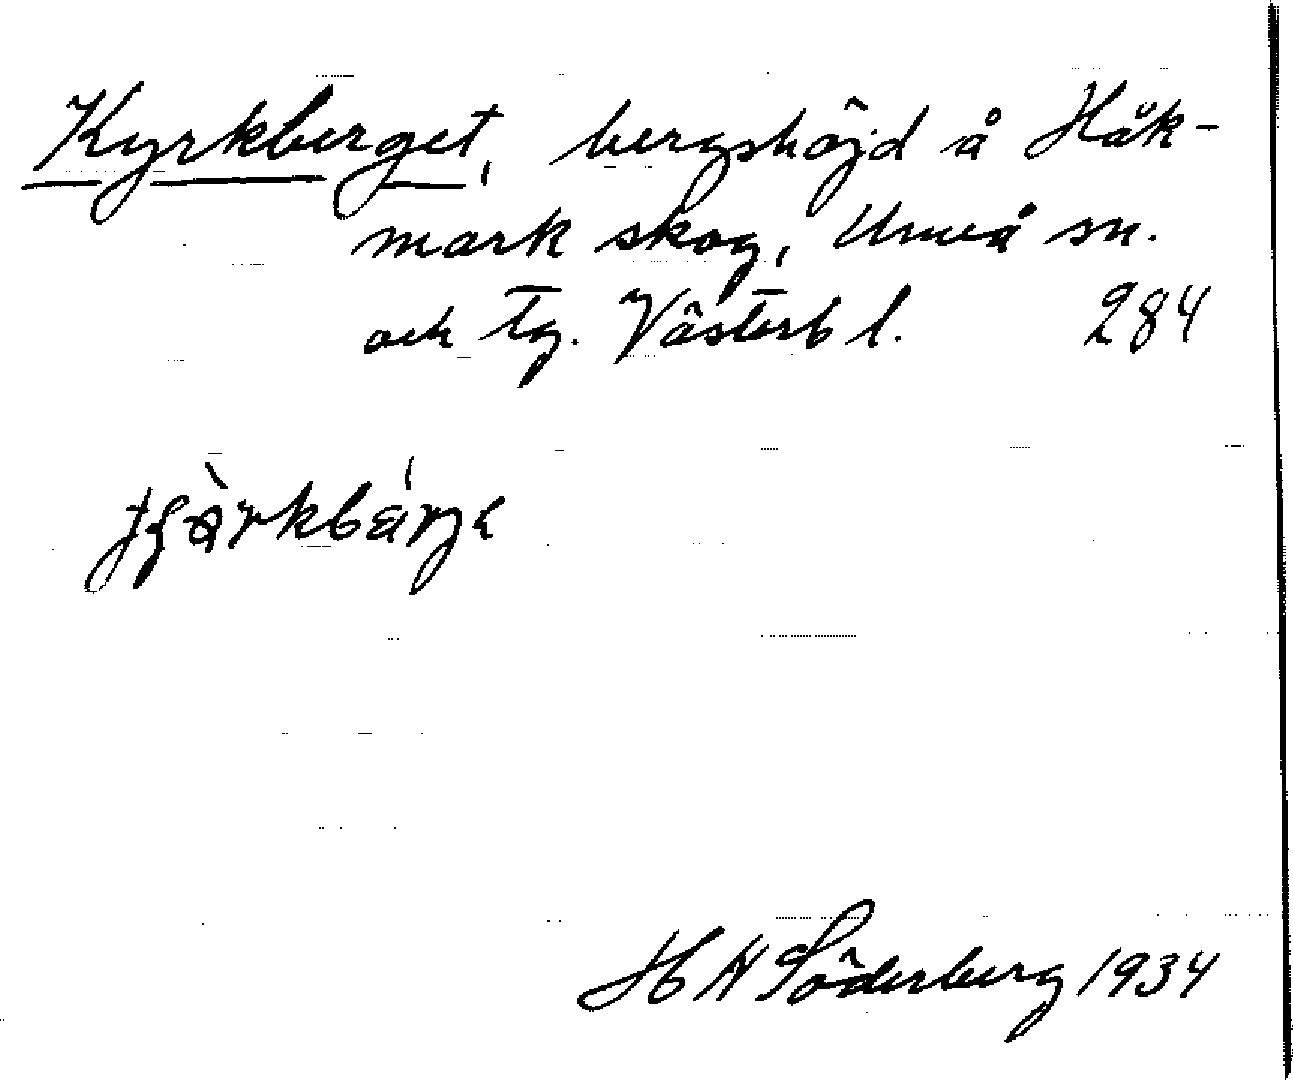 Kyrkberget, bergshöjd å Håk-
mark skog, Umeå sn.
och tg. Västerb l. 284
H N Söderberg 1934